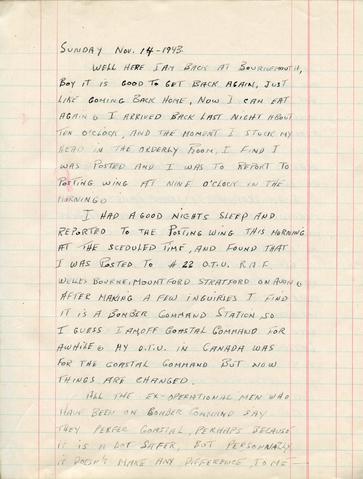 SUNDAY NOV. 14-1943.
WELL HERE I AM BACK AT BOURNEMOUTH,
BOY IT IS GOOD TO GET BACK AGAIN, JUST
LIKE COMING BACK HOME, NOW I CAN EAT
AGAIN. I ARRIVED BACK LAST NIGHT ABOUT
TEN O'CLOCK, AND THE MOMENT I STUCK MY
HEAD IN THE ORDERLY ROOM, I FIND I
WAS POSTED AND I WAS TO REPORT TO
POSTING WING AT NINE O'CLOCK IN THE
MORNING.
I HAD A GOOD NIGHTS SLEEP AND
REPORTED TO THE POSTING WING THIS MORNING
AT THE SCEDULED TIME, AND FOUND THAT
I WAS POSTED TO # 22 O.T.U. R.A.F
WELLES BOURNE, MOUNTFORD STRATFORD ON AVON.
AFTER MAKING A FEW INQUIRIES I FIND
IT IS A BOMBER COMMAND STATION SO
I GUESS I AM OFF COASTAL COMMAND FOR
AWHILE. MY O.T.U. IN CANADA WAS
FOR THE COASTAL COMMAND BUT NOW
THINGS ARE CHANGED.
ALL THE EX-OPERATIONAL MEN WHO
HAVE BEEN ON BOMBER COMMAND SAY
THEY PERFER COASTAL, PERHAPS BECAUSE
IT IS A LOT SAFER, BUT PERSONNALLY
IT DOESN'T MAKE ANY DIFFERENCE TO ME